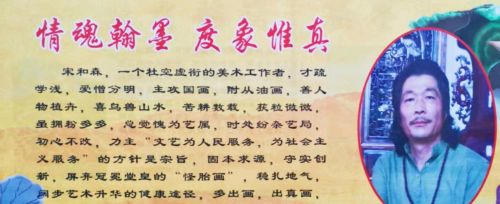 情魂翰墨 度象惟真
宋和森，一个杜空虚衔的美术工作者，才疏
学浅，爱憎分明，主攻国画，附从油画，善人
物植卉，喜鸟兽山水，苦耕数载，获粒微微，
虽拥粉多多，总觉愧为艺属，时处纷杂艺局，
初心不改，力主“文艺为人民服务，为社会主
义服务”的方针是安旨，固本求源，守实创
新，屏弃冠冕堂皇的“怪胎画”，稳扎地气，
阔步艺术升华的健康途径，多出画，出真画，